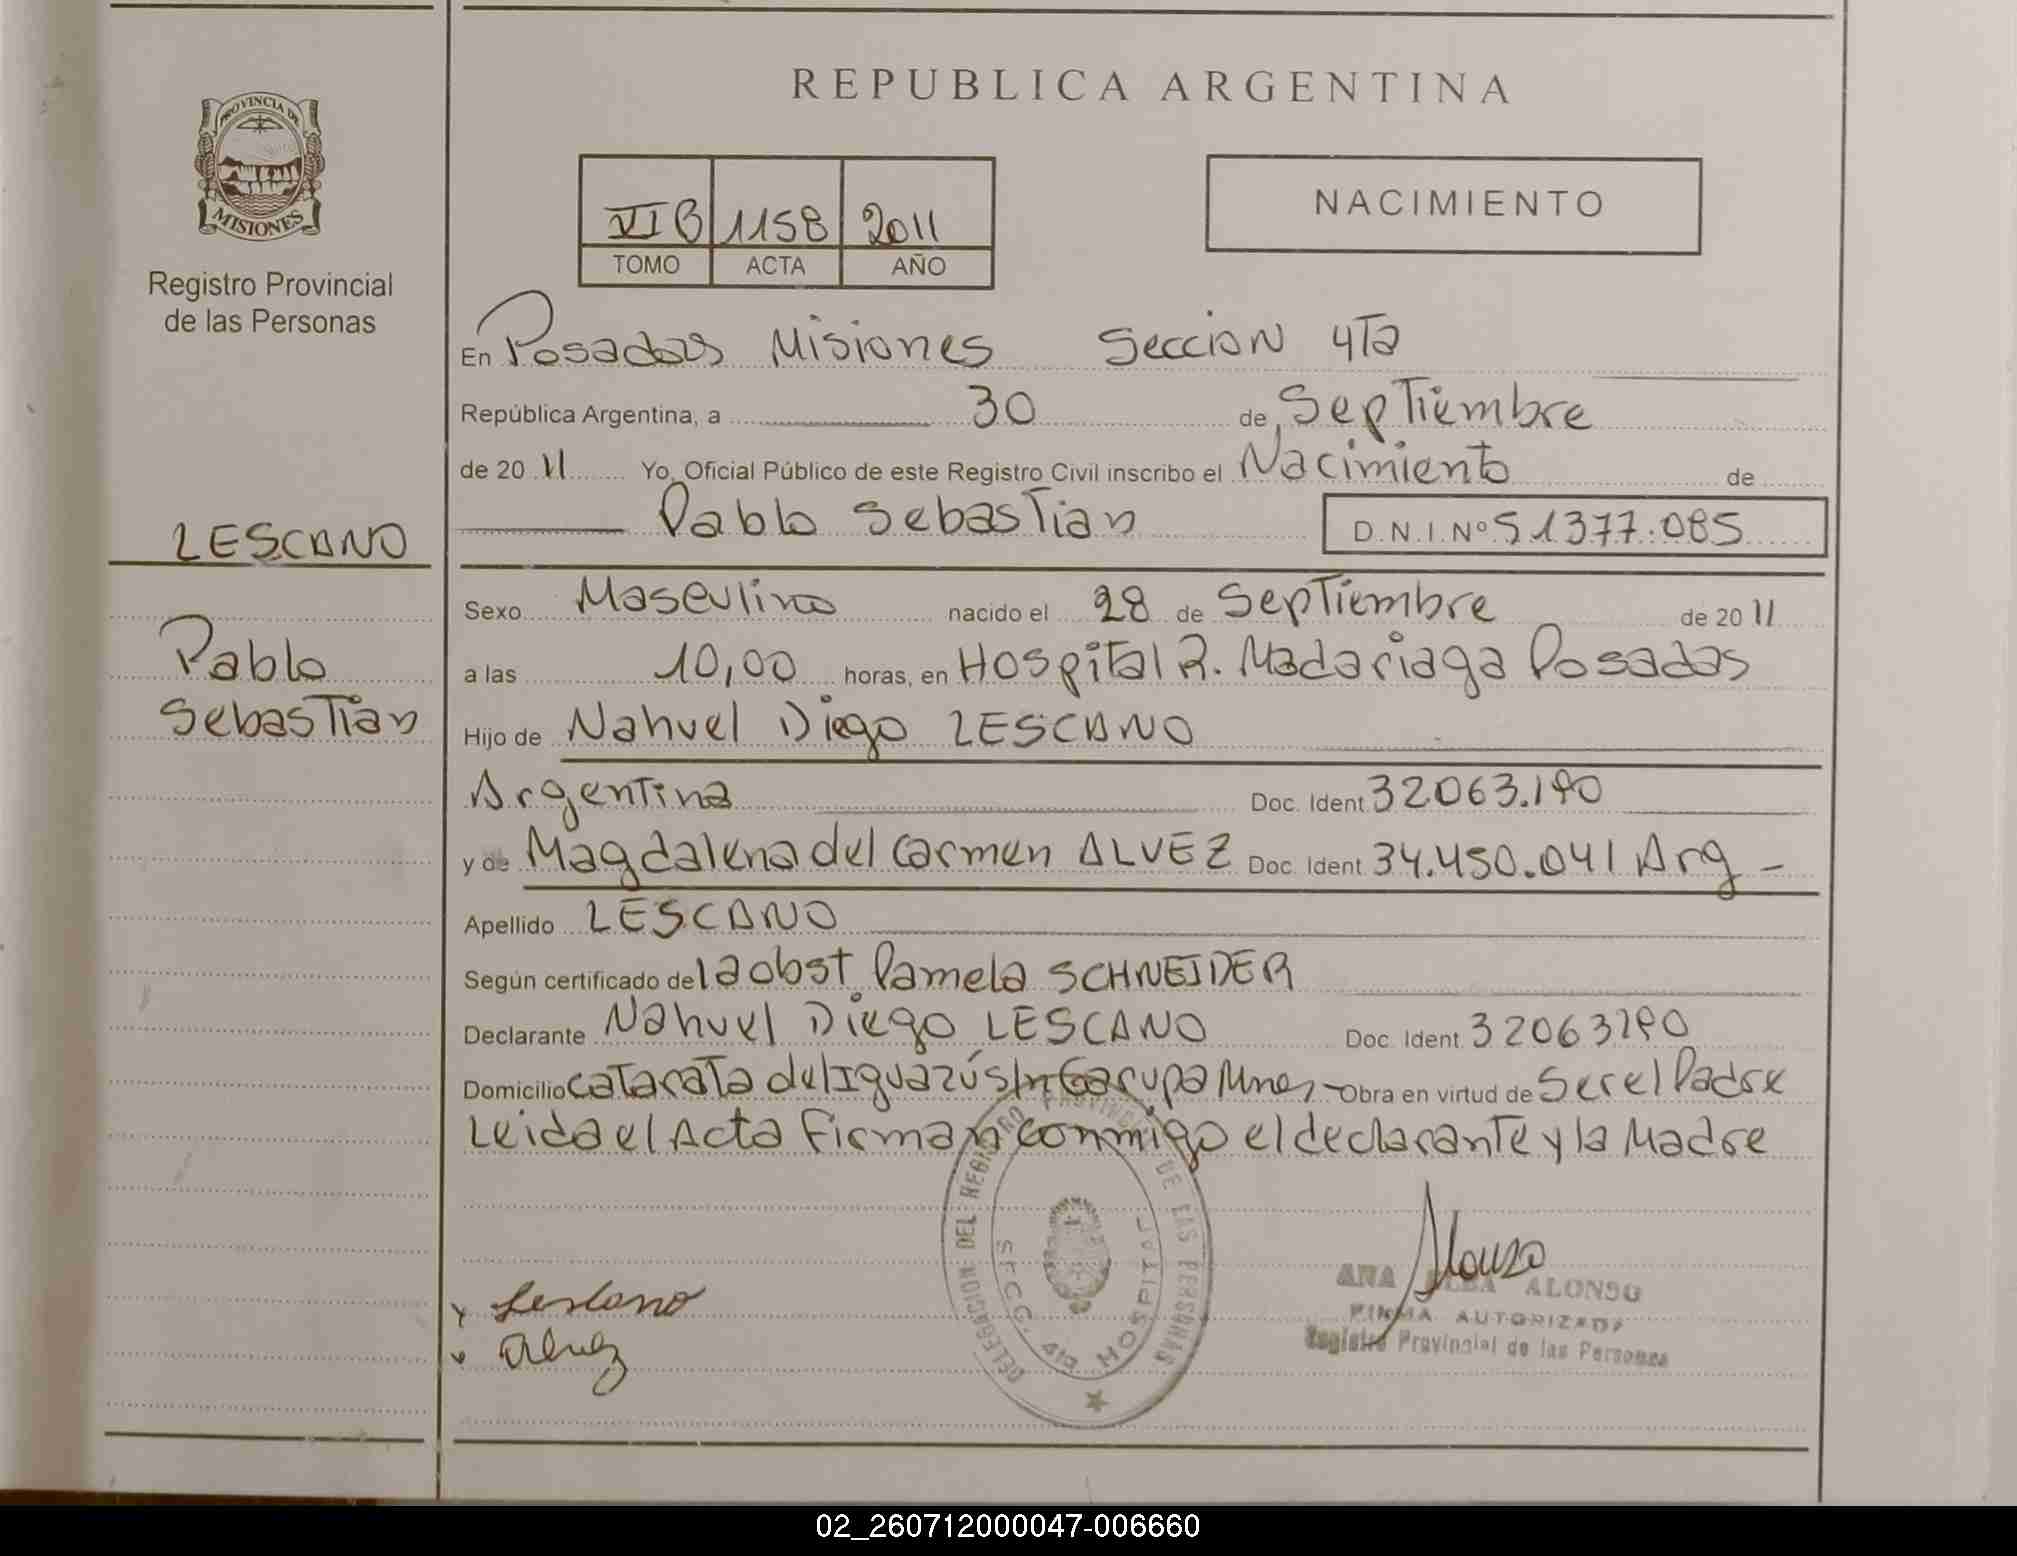 REPUBLICA ARGENTINA
PROVINCIA DE
MISIONES
Registro Provincial
de las Personas
VI B 1158 2011
TOMO ACTA AÑO
NACIMIENTO
En Posadas Misiones Seccion 4Ta
República Argentina, a 30 de Septiembre
de 2011 Yo, Oficial Público de este Registro Civil inscribo el Nacimiento de
Pablo Sebastian D.N.I.Nº 51377.085
LESCANO
Pablo
Sebastian
Sexo Masculino nacido el 28 de Septiembre de 2011
a las 10,00 horas, en Hospital R. Madariaga Posadas
Hijo de Nahuel Diego LESCANO
Argentina Doc. Ident. 32063.190
y de Magdalena del Carmen ALVEZ Doc. Ident. 34.450.041 Arg -
Apellido LESCANO
Según certificado de la obst Pamela SCHNEIDER
Declarante Nahuel Diego LESCANO Doc. Ident. 32063190
Domicilio Catarata del Iguazú s/n Garupa Mnes - Obra en virtud de Ser el Padre
Leida el Acta Firman conmigo el declarante y la Madre
DELEGACION DEL REGISTRO PROVINCIAL DE LAS PERSONAS
SECC. 4ta. HOSPITAL
Lescano
Alvez
Alonso
ANA ELBA ALONSO
FIRMA AUTORIZADA
Registro Provincial de las Personas
02_260712000047-006660